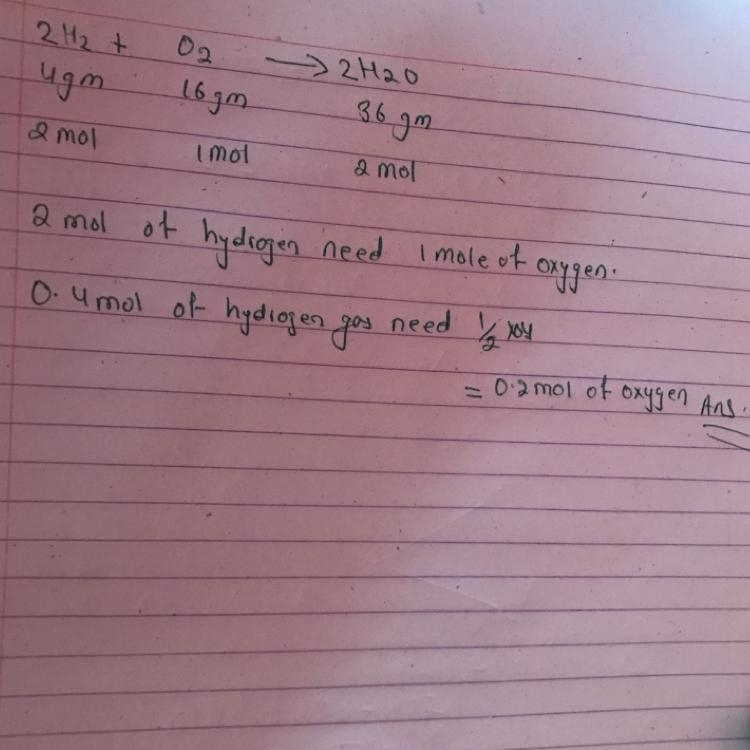 2H2 + O2 → 2H2O
4gm 16gm 36 gm
2 mol 1mol 2 mol
2 mol of hydrogen need 1mole of oxygen.
0.4mol of hydrogen gas need 1/2
= 0.2mol of oxygen Ans.